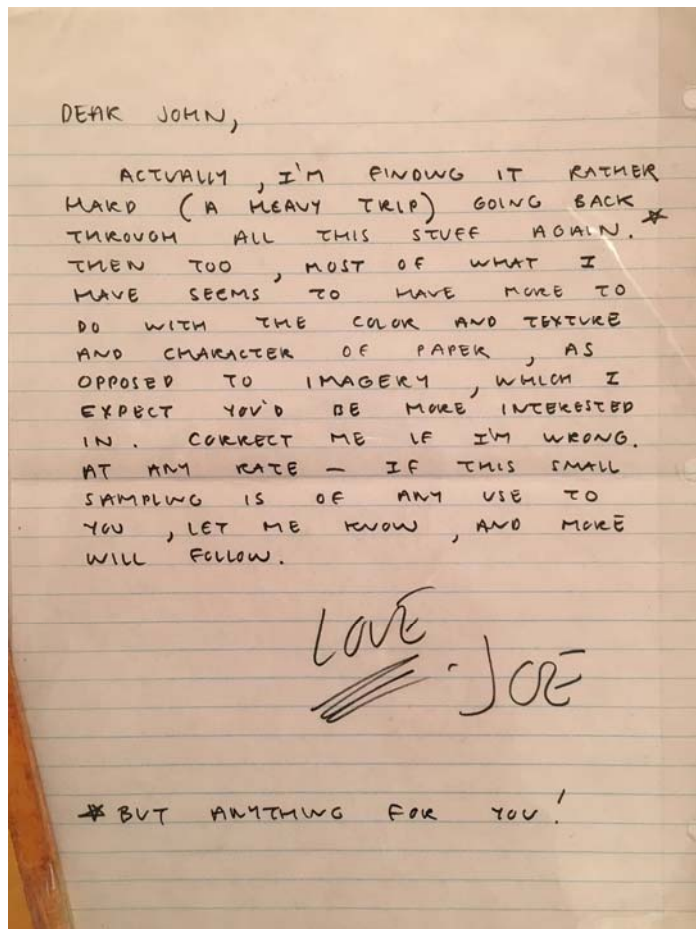 DEAR JOHN,
ACTUALLY, I'M FINDING IT RATHER
HARD (A HEAVY TRIP) GOING BACK
THROUGH ALL THIS STUFF AGAIN.*
THEN TOO, MOST OF WHAT I
HAVE SEEMS TO HAVE MORE TO
DO WITH THE COLOR AND TEXTURE
AND CHARACTER OF PAPER, AS
OPPOSED TO IMAGERY, WHICH I
EXPECT YOU'D BE MORE INTERESTED
IN. CORRECT ME IF I'M WRONG.
AT ANY RATE — IF THIS SMALL
SAMPLING IS OF ANY USE TO
YOU, LET ME KNOW, AND MORE
WILL FOLLOW.
LOVE
- JOE
* BUT ANYTHING FOR YOU!